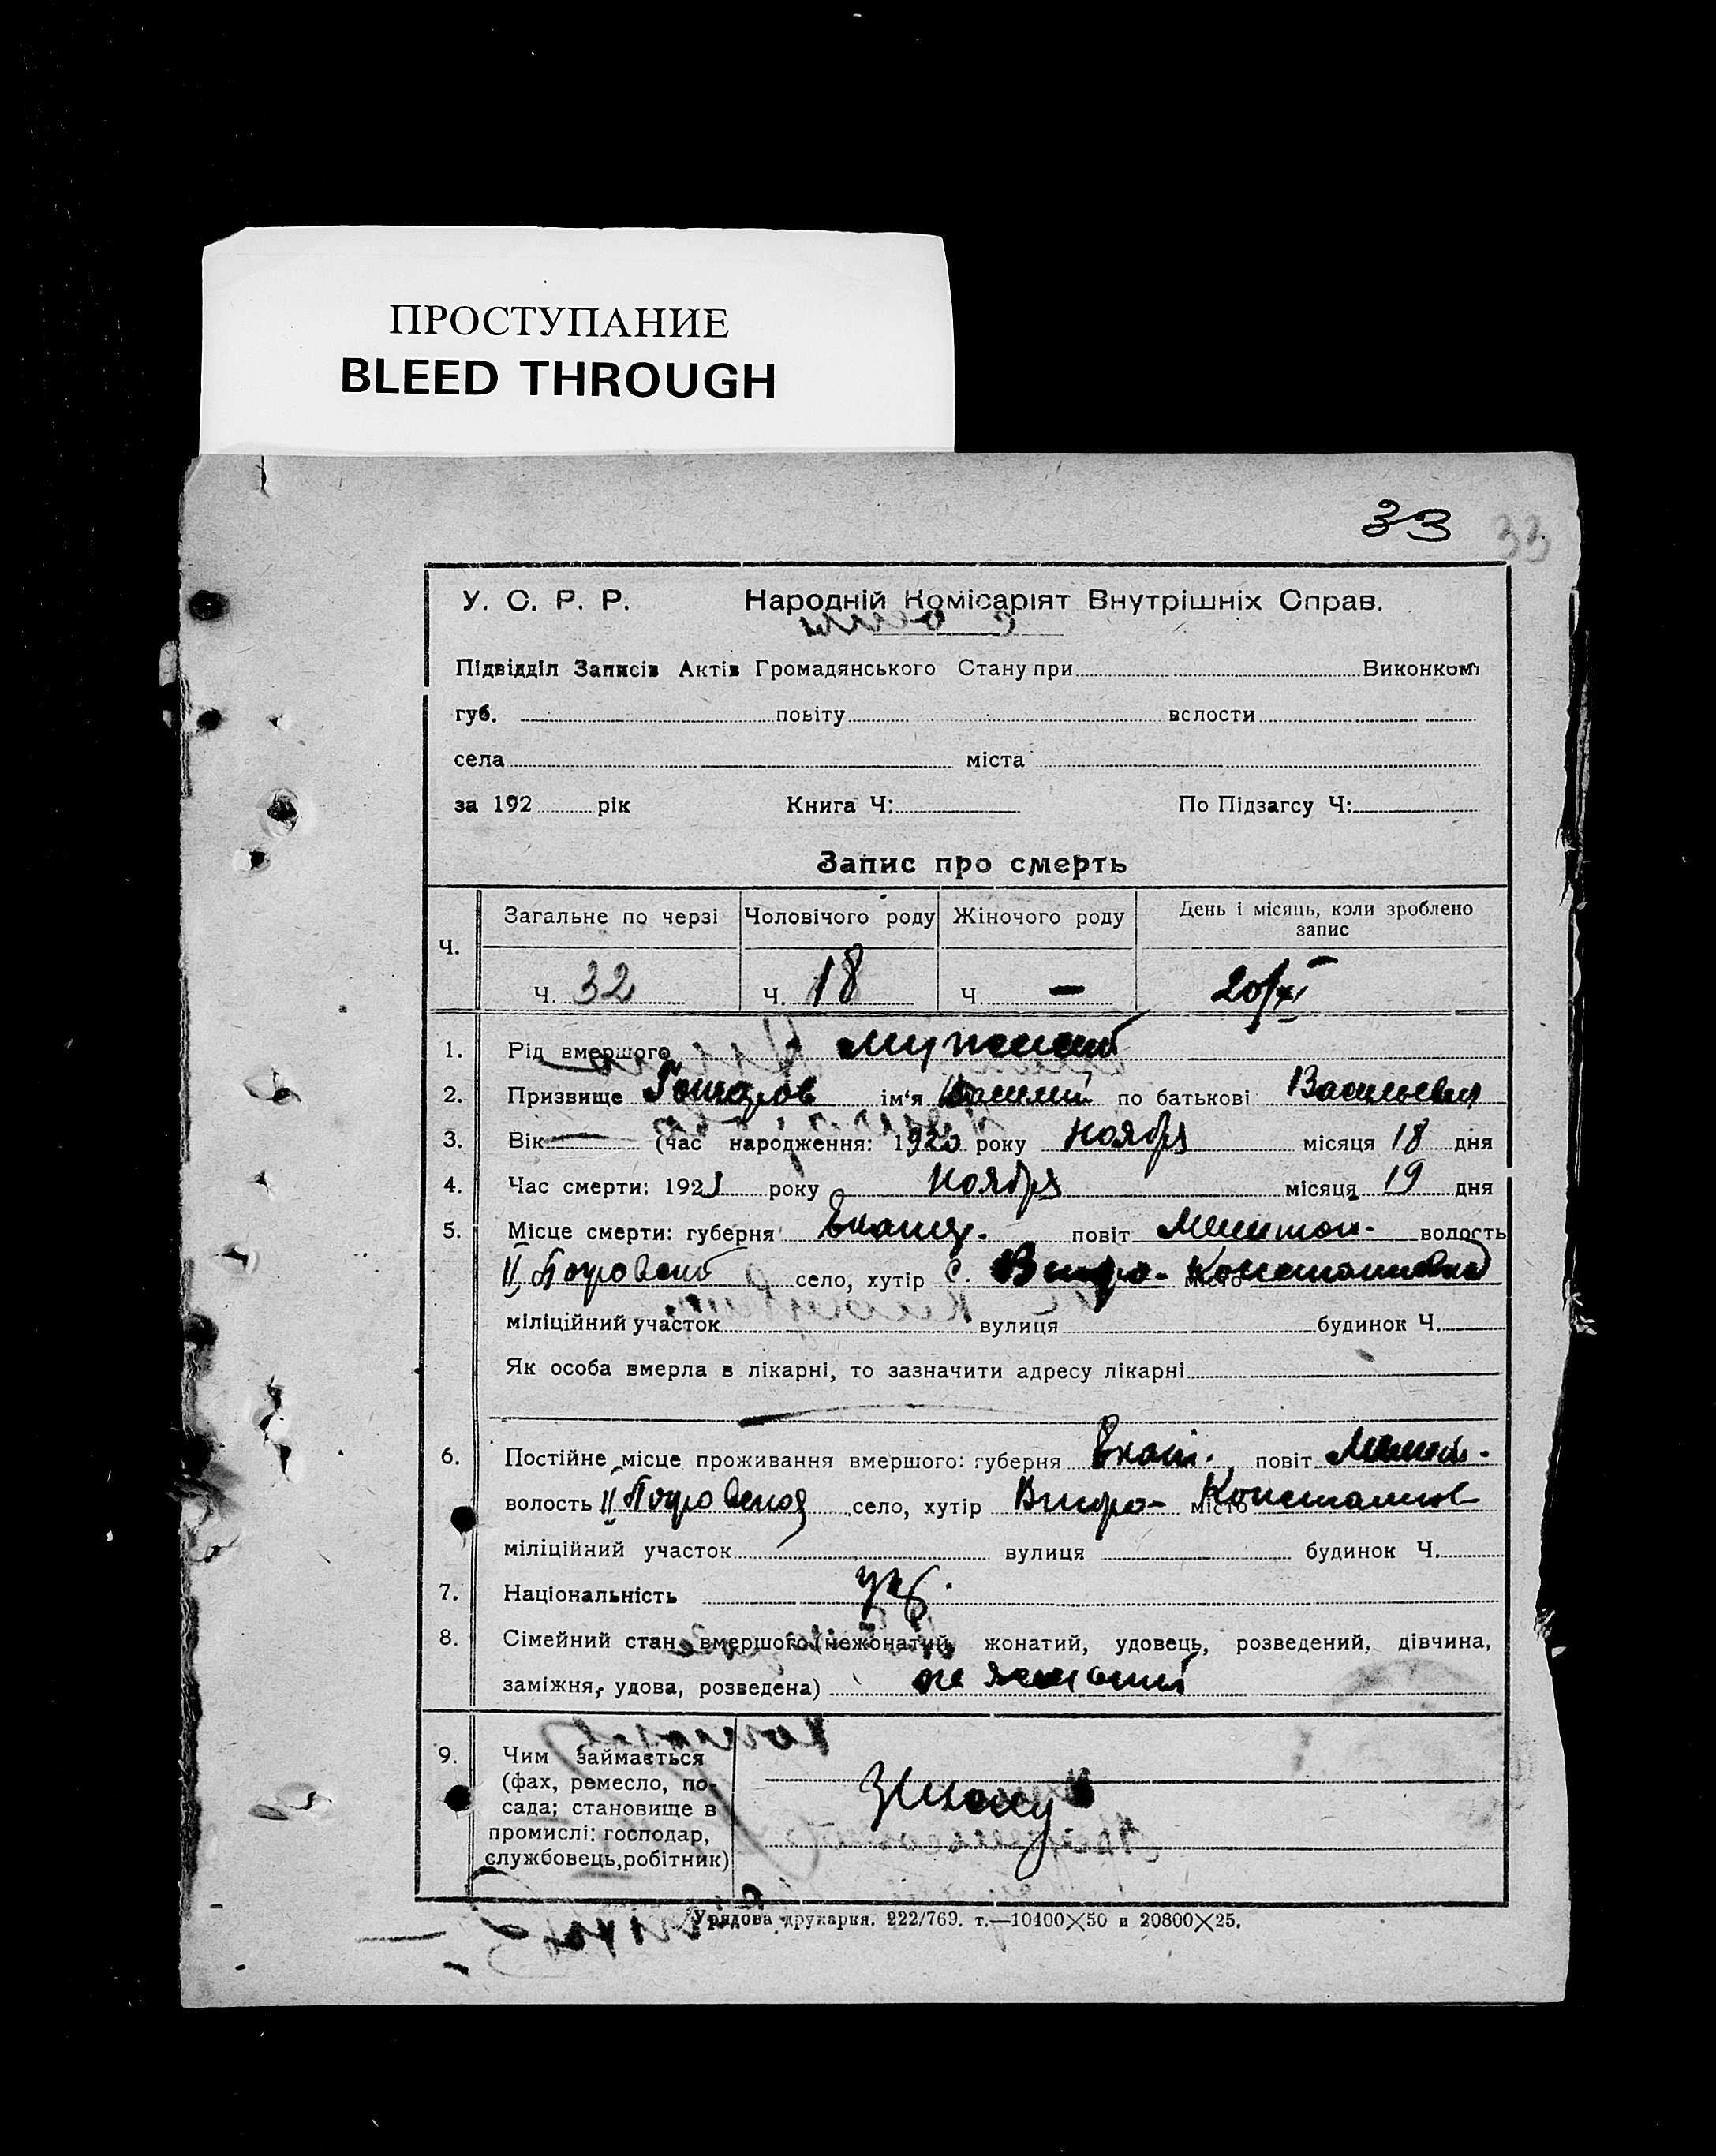 ПРОСТУПАНИЕ
BLEED THROUGH
33 33
У. С. Р. Р. Народній Комісаріят Внутрішніх Справ.
Підвідділ Записів Актів Громадянського Стану при Виконком
губ. повіту волости
села міста
за 192 рік Книга Ч: По Підзагсу Ч:
Запис про смерть
Ч. Загальне по черзі Чоловічого роду Жіночого роду День і місяць, коли зроблено
запис
Ч. 32 Ч. 18 Ч — 20/XI
1. Рід вмершого мужской
2. Призвище ім'я Василий по батькові Васильевич
3. Вік — (час народження: 1920 року Ноября місяця 18 дня
4. Час смерти: 1921 року Ноября місяця 19 дня
5. Місце смерти: губерня повіт волость
II Покровской село, хутір с. місто Константиновка
міліційний участок вулиця будинок Ч.
Як особа вмерла в лікарні, то зазначити адресу лікарні
6. Постійне місце проживання вмершого: губерня повіт
волость II Покровская село, хутір місто Константинов
міліційний участок вулиця будинок Ч.
7. Національність укр.
8. Сімейний стан вмершого (нежонатий, жонатий, удовець, розведений, дівчина,
заміжня, удова, розведена) не женатый
9. Чим займається
(фах, ремесло, по-
сада; становище в
промислі: господар,
службовець, робітник)
Урядова друкарня. 222/769. т.—10400×50 и 20800×25.